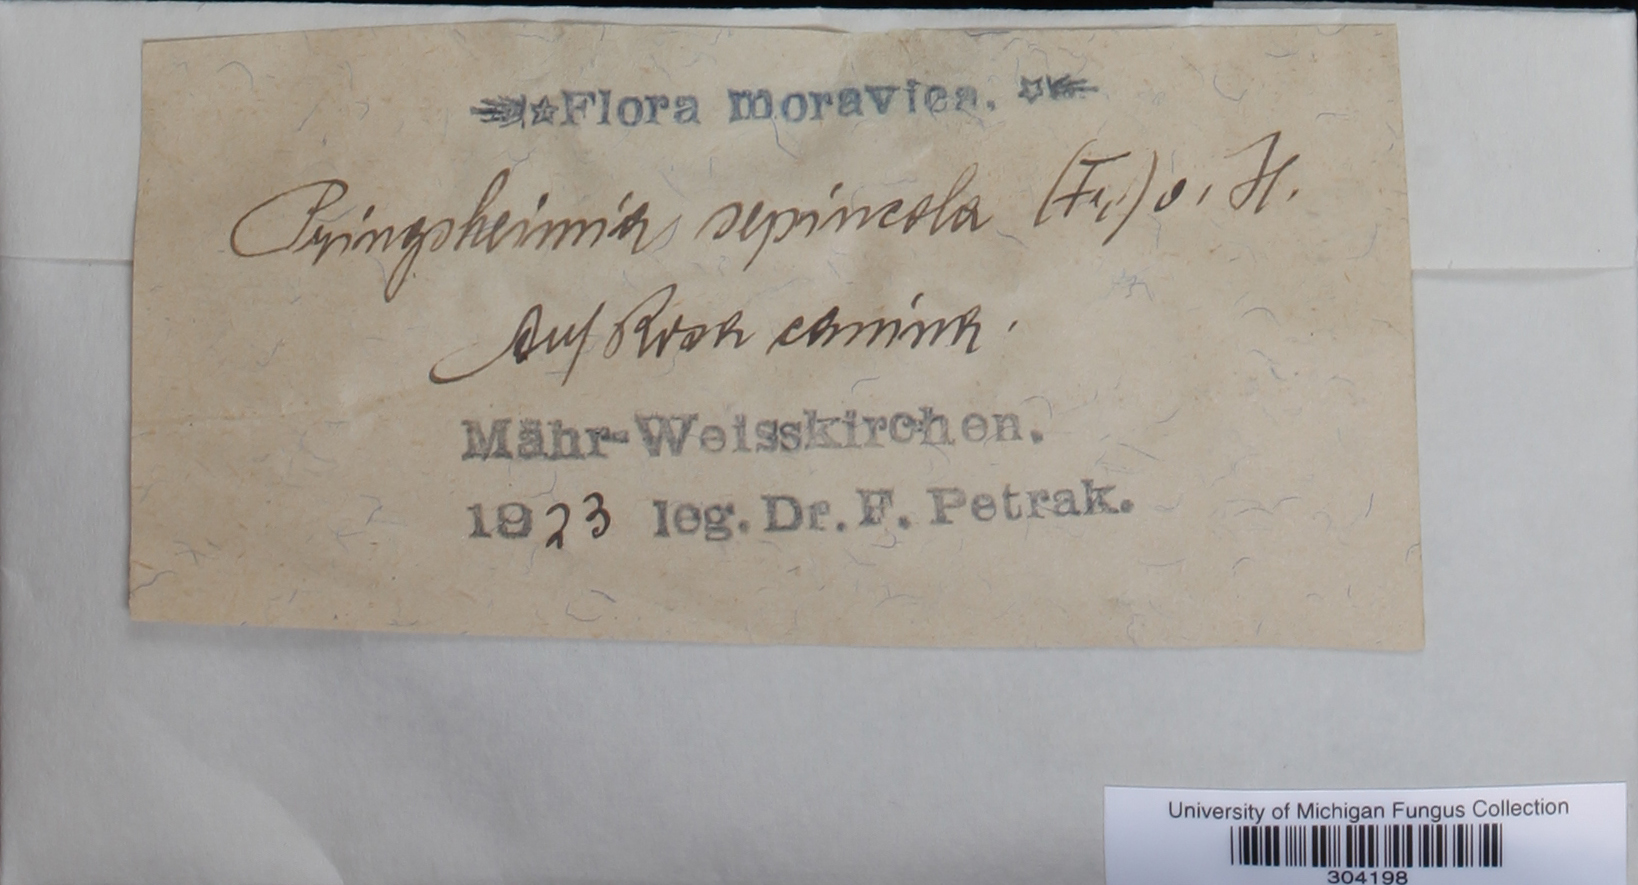 Flora moravica.
Pringsheimia sepincola (Fr.) v. H.
Auf Rosa canina.
Mähr-Weisskirchen.
1923 leg. Dr. F. Petrak.
University of Michigan Fungus Collection
304198